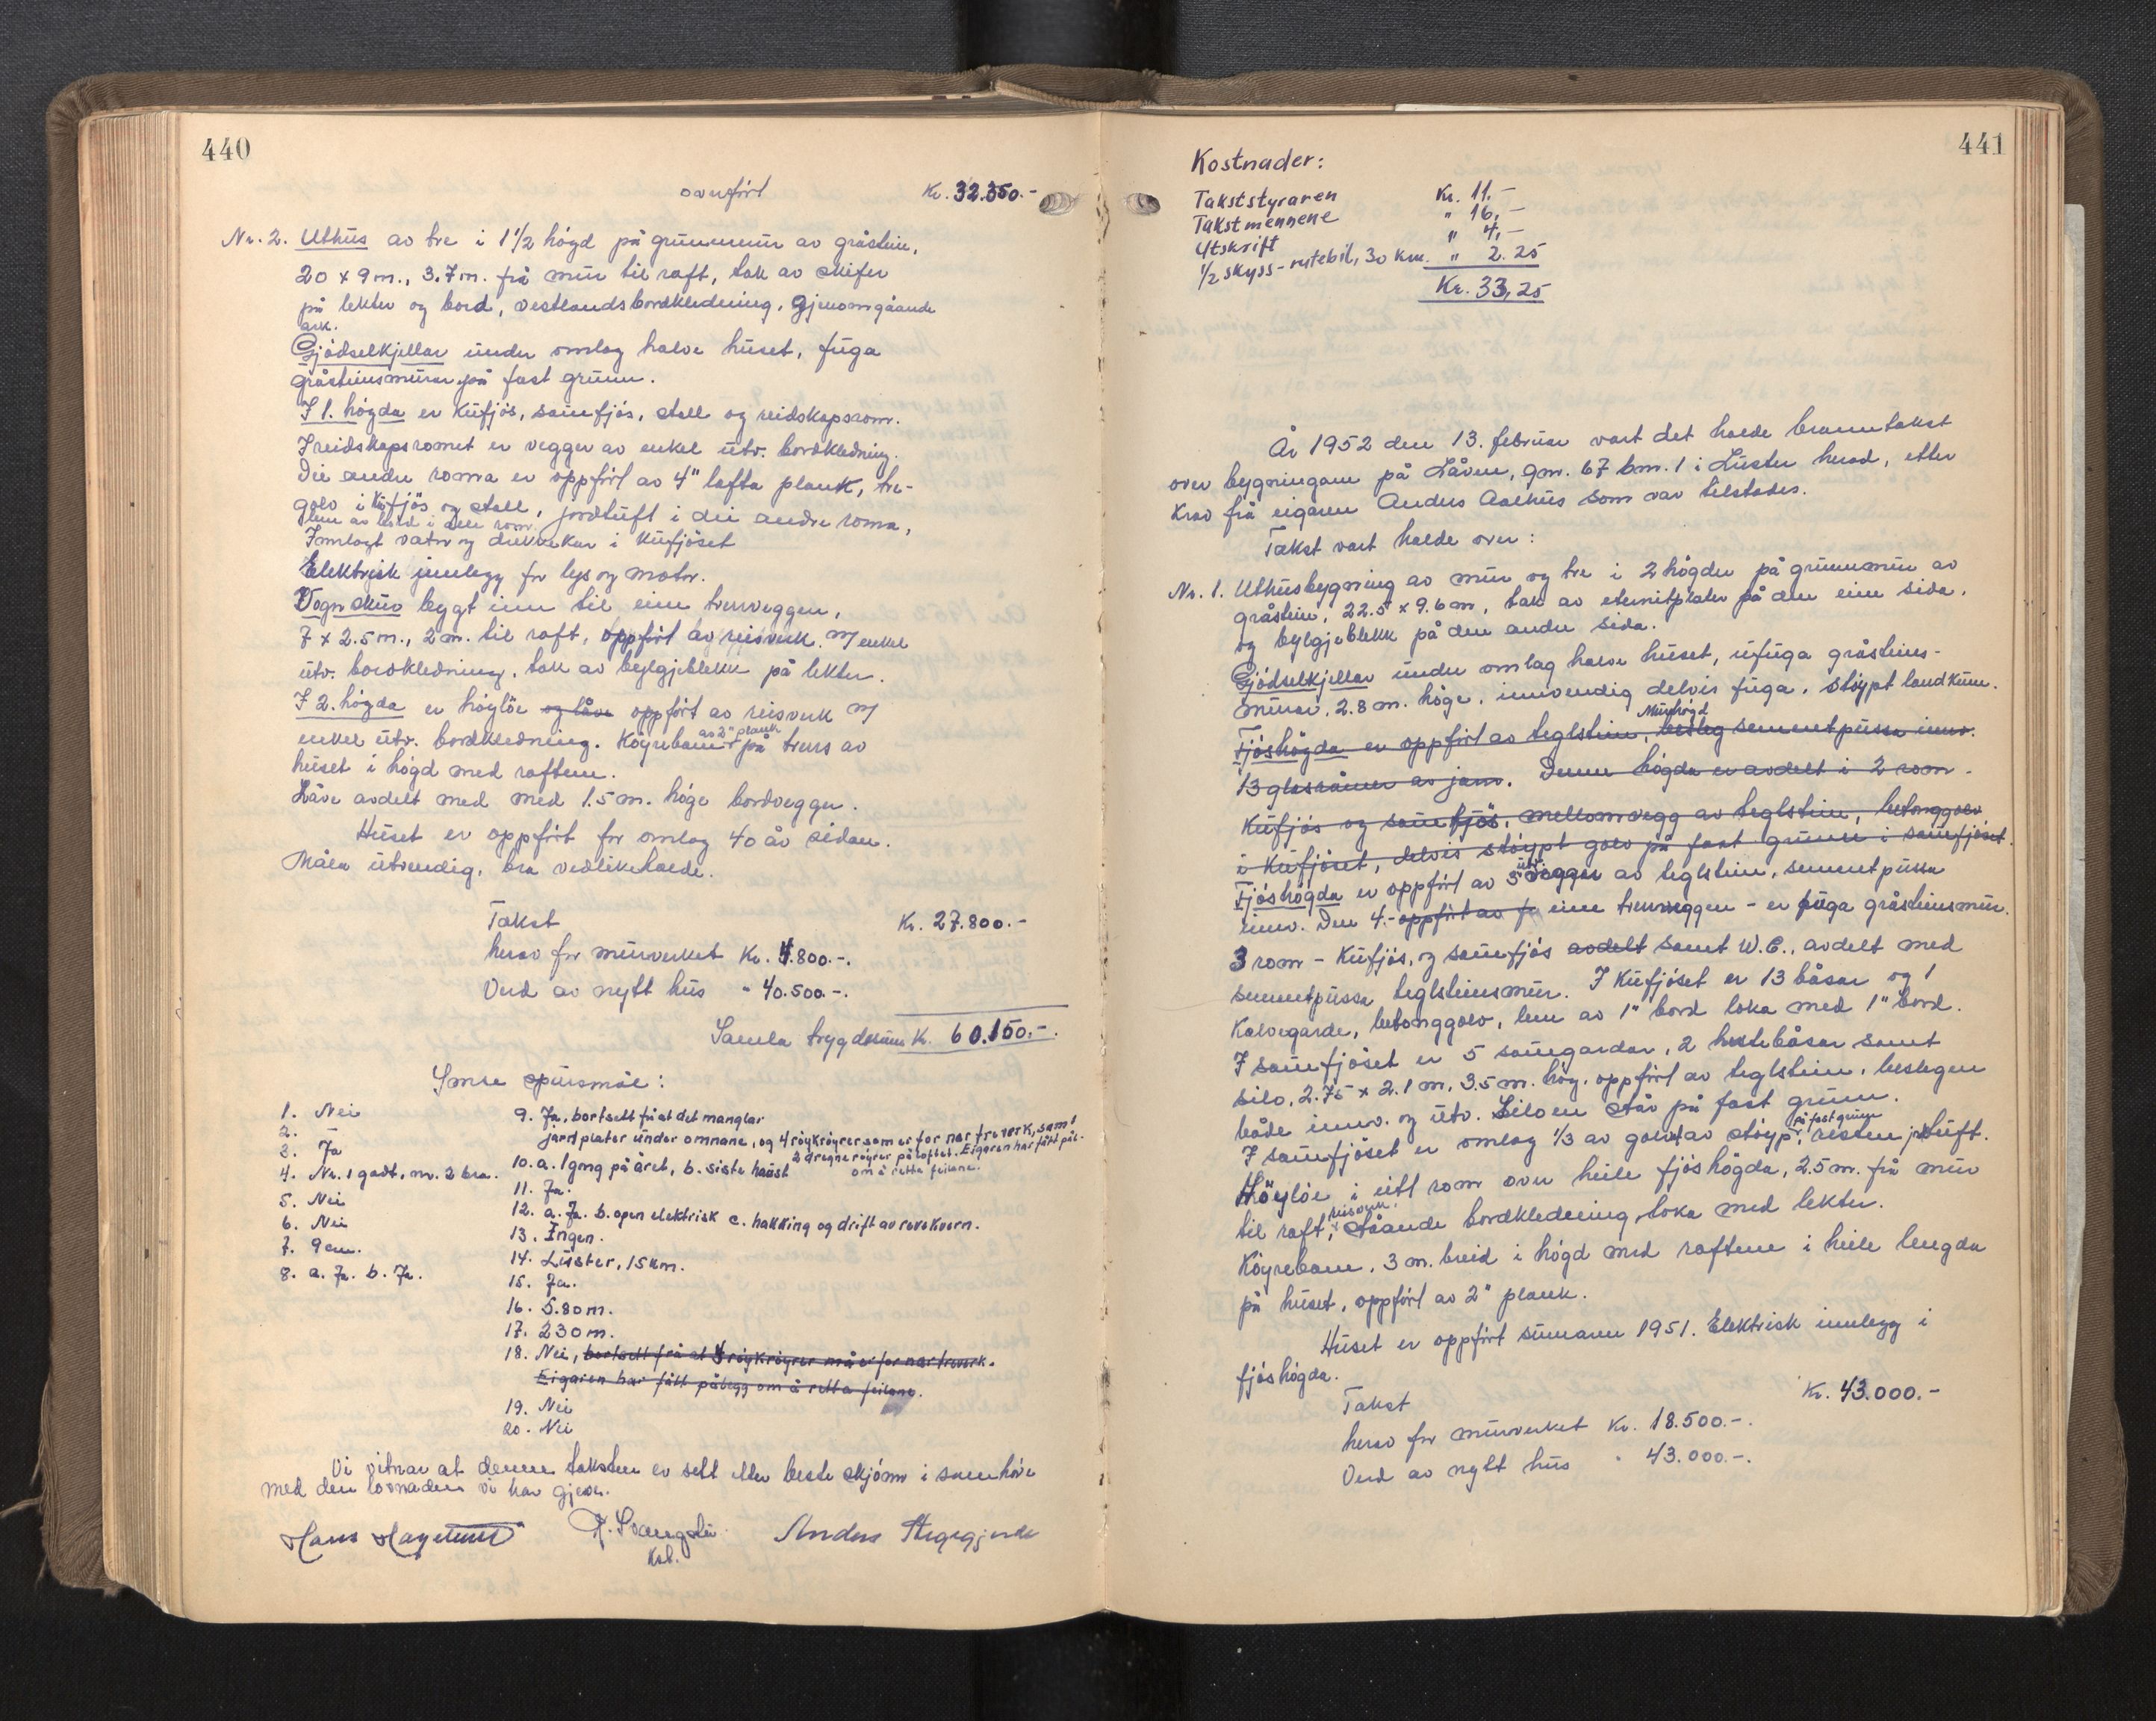 440
overført Kr. 32.350.-
Nr. 2. Uthus av tre i 1 1/2 høgd på grunnmur av gråstein,
20 x 9 m., 3.7 m. frå mur til raft, tak av skifer
på lekter og bord, vestlandsbordkledning, gjenomgåande
ark.
Gjødselkjellar under omlag halve huset, fuga
gråsteinsmurar på fast grunn.
I 1. høgda er kufjøs, sauefjøs, stall og reidskapsrom.
I reidskapsromet er vegger av enkel utv. bordkledning.
Dei andre roma er oppført av 4" lafta plank, tre-
golv i kufjøs og stall, jordtuft i dei andre roma,
lem av bord i alle rom.
Innlagt vatn og drikkekar i kufjøset
Elektrisk innlegg for lys og motor.
Vognskur bygt inn til eine tverrveggen,
7 x 2.5 m., 2 m. til raft, oppført av reisverk m/ enkel
utv. bordkledning, tak av bylgjeblekk på lekter.
I 2. høgda er høyløe og låve oppført av reisverk m/
enkel utv. bordkledning. Køyrebane av 2" plank på tvers av
huset i høgd med raftene.
Låve avdelt med med 1.5 m. høge bordvegger.
Huset er oppført for omlag 40 år sidan.
Måla utvendig, bra vedlikehalde.
Takst Kr. 27.800.-
herav for murverket Kr. 4.800.-.
Verd av nytt hus " 40.500.-.
Samla trygdesum K. 60.150.-.
Ymse spursmål:
1. Nei
2. -
3. Ja
4. Nr. 1 godt, nr. 2 bra.
5. Nei
6. Nei
7. 9 cm.
8. a. Ja. b. Ja.
9. Ja, bortsett frå at det manglar
jarnplater under omnane, og 4 røykrøyrer som er for nær treverk, samt
2 dregne røyrer på loftet. Eigaren har fått pål.
om å retta feilene.
10. a. 1 gong på året, b. siste haust
11. Ja.
12. a. Ja. b. open elektrisk c. hakking og drift av revekvern.
13. Ingen.
14. Luster, 15 km.
15. Ja.
16. 5.80 m.
17. 230 m.
18. Nei, bortsett frå at 4 røykrøyrer må er for nær treverk.
Eigaren har fått pålegg om å retta feilene.
19. Nei
20. Nei
Vi vitnar at denne taksten er sett etter beste skjønn i samhøve
med den lovnaden vi har gjeve.
Hans Anders
Ksl.
441
Kostnader:
Takststyraren Kr. 11.-
Takstmennene " 16.-
Utskrift " 4.-
1/2 skyss - rutebil, 30 km. " 2.25
Kr. 33,25
År 1952 den 13. februar vart det halde branntakst
over bygningane på Låven, gnr. 67 bnr. 1 i Luster herad, etter
krav frå eigaren Anders Aalhus som var tilstades.
Takst vart halde over:
Nr. 1. Uthusbygning av mur og tre i 2 høgder på grunnmur av
gråstein, 22.5 x 9.6 m, tak av eternitplater på den eine sida,
og bylgjeblekk på den andre sida.
Gjødselkjellar under omlag halve huset, ufuga gråsteins-
murar, 2.8 m. høge, innvendig delvis fuga, støypt landkum.
Murhøgd
Fjøshøgda er oppført av teglstein, beslag sementpussa innv.
13 glasråmer av jarn. Denne høgda er avdelt i 2 rom.
Kufjøs og sauefjøs, mellomvegg av teglstein, betonggolv
i kufjøset, delvis støypt golv på fast grunn i sauefjøset.
Fjøshøgda er oppført av 3 utv. vegger av teglstein, sementpussa
innv. Den 4. - oppført av fu eine tverrveggen - er fuga gråsteinsmur.
3 rom - kufjøs, og sauefjøs avdelt samt W.C., avdelt med
sementpussa teglsteinsmur. I kufjøset er 13 båsar og 1
kalvegarde, betonggolv, lem av 1" bord loka med 1" bord.
I sauefjøset er 5 sauegardar, 2 hestebåsar samt
silo, 2.75 x 2.1 m, 3.5 m. høg, oppført av teglstein, beslegen
både innv. og utv. Siloen står på fast grunn.
I sauefjøset er omlag 1/3 av golvet av støyp på fast grunn, resten jordtuft.
Høyløe i eitt rom over heile fjøshøgda, 2.5 m. frå mur
til raft, reisverk, ståande bordkledning loka med lekter.
Køyrebane, 3 m. breid i høgd med raftene i heile lengda
på huset, oppført av 2" plank.
Huset er oppført sumaren 1951. Elektrisk innlegg i
fjøshøgda.
Takst Kr. 43.000.-
herav for murverket Kr. 18.500.-.
Verd av nytt hus " 43.000.-.